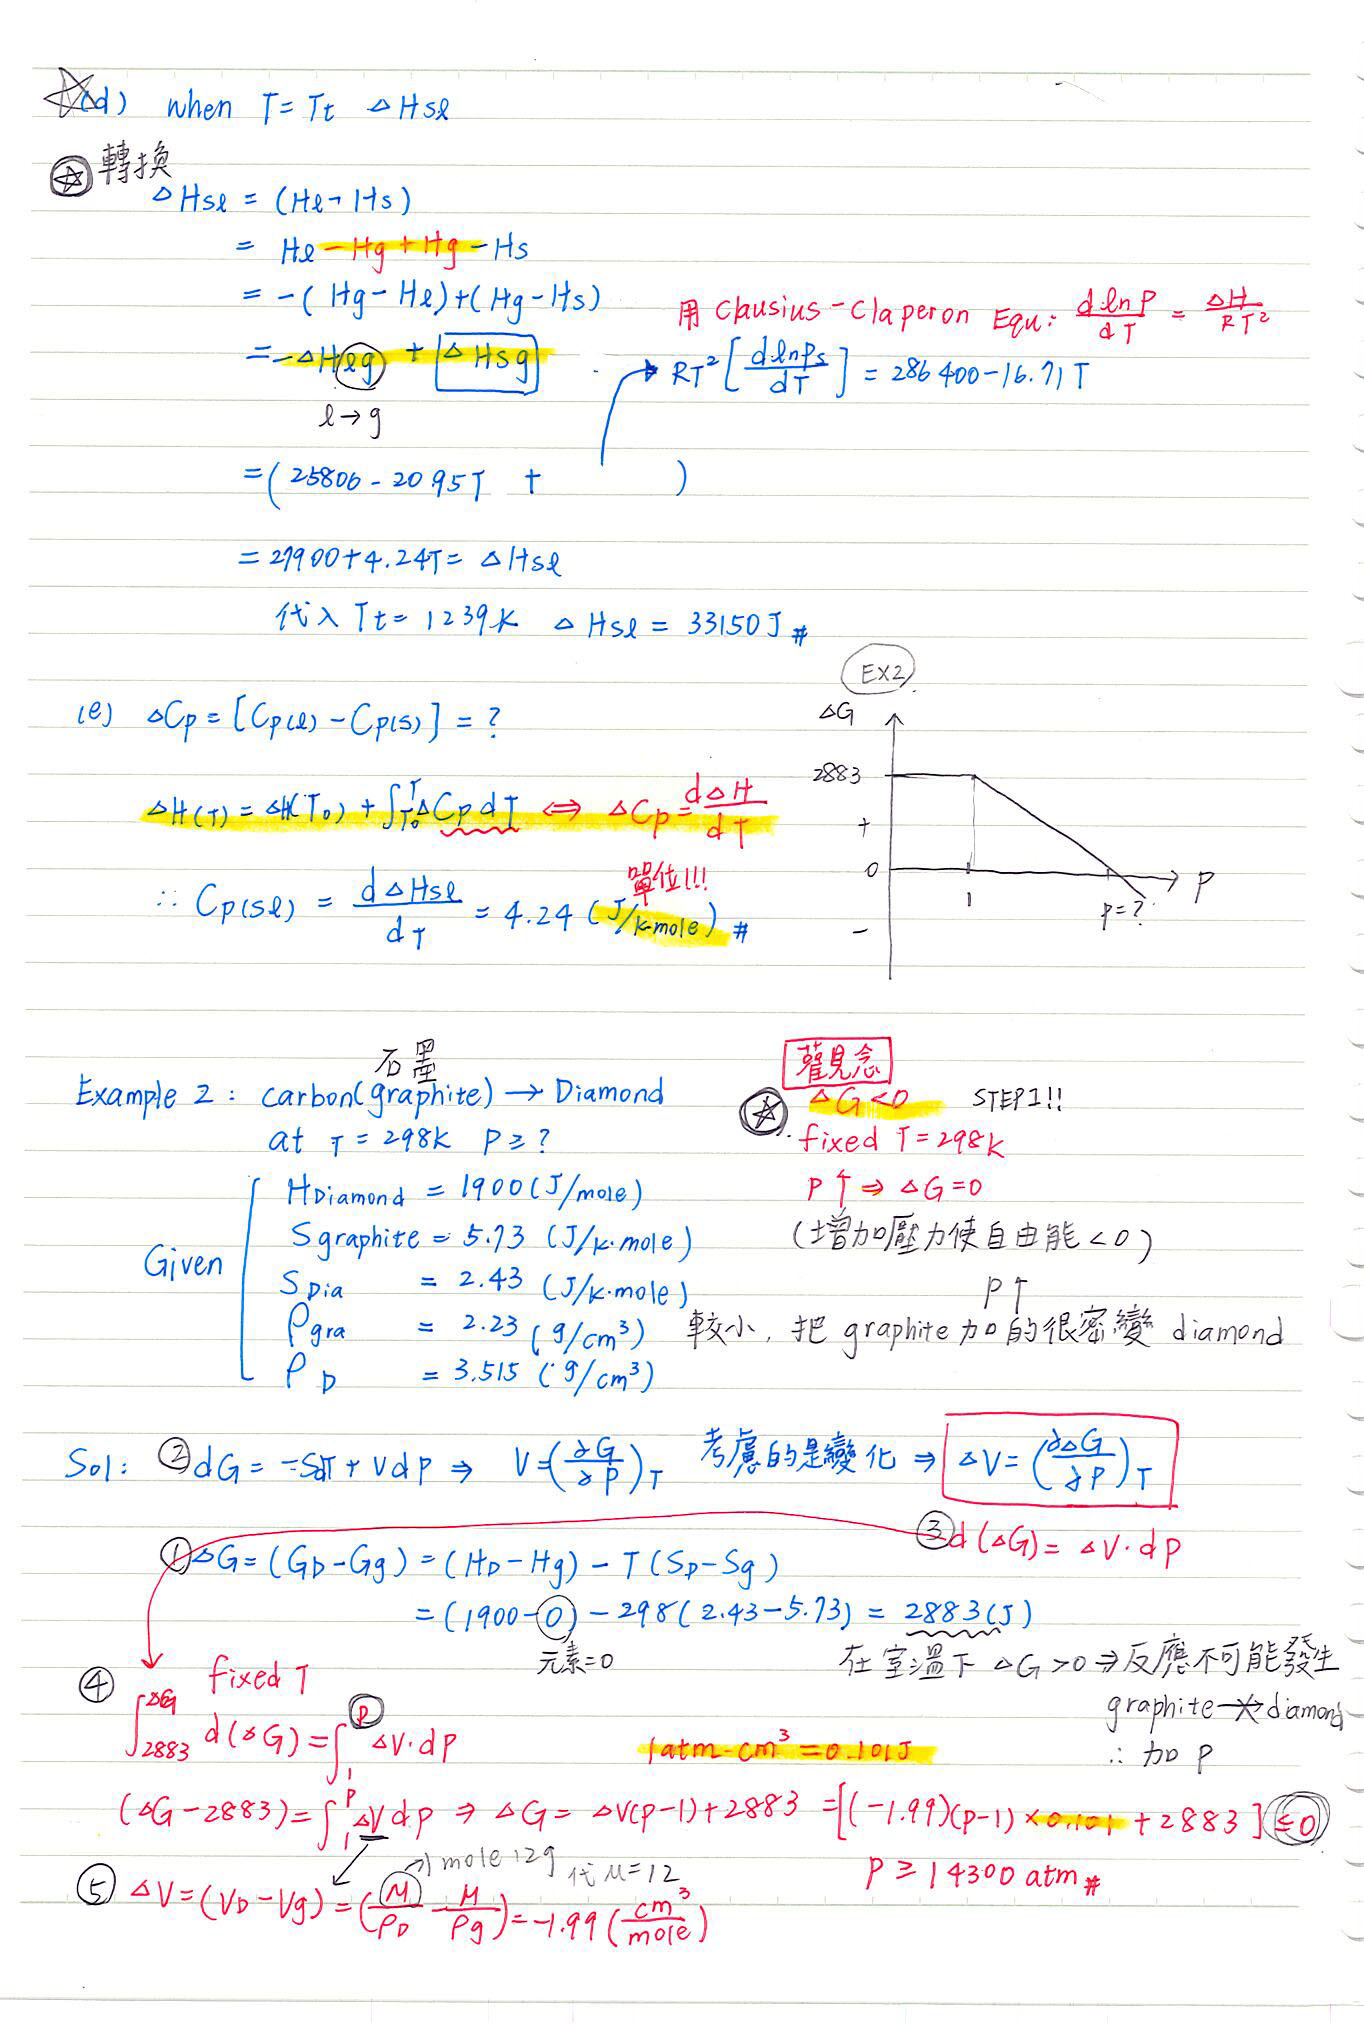 (d) when T = Tt △Hsl
轉換
△Hsl = (Hl - Hs)
= Hl - Hg + Hg - Hs
= -(Hg - Hl) + (Hg - Hs)
= -△Hlg + △Hsg
l → g
用 Clausius - Claperon Equ: dlnP/dT = △H/RT²
RT² [dlnPs/dT] = 286400 - 16.71T
= (25806 - 20.95T + )
= 27900 + 4.24T = △Hsl
代入 Tt = 1239K △Hsl = 33150J #
(e) △Cp = [Cp(l) - Cp(s)] = ?
△H(T) = △H(T₀) + ∫T₀^T △Cp dT ⇔ △Cp = d△H/dT
單位!!!
∴ Cp(sl) = d△Hsl/dT = 4.24 (J/k·mole) #
EX2
△G
2883
+
0
P
1
P=?
-
石墨
Example 2 : carbon(graphite) → Diamond
at T = 298k P ≥ ?
Given
HDiamond = 1900 (J/mole)
Sgraphite = 5.73 (J/k·mole)
SDia = 2.43 (J/k·mole)
ρgra = 2.23 (g/cm³)
ρD = 3.515 (g/cm³)
觀念
△G<0 STEP1!!
fixed T = 298k
P↑ ⇒ △G=0
(增加壓力使自由能<0)
P↑
較小, 把 graphite 加的很密變 diamond
Sol: ② dG = -SdT + VdP ⇒ V=(∂G/∂P)T 考慮的是變化 ⇒ △V=(∂△G/∂P)T
③ d(△G) = △V·dP
① △G = (GD - Gg) = (HD - Hg) - T(SD - Sg)
= (1900 - 0) - 298(2.43 - 5.73) = 2883(J)
元素=0
在室溫下 △G>0 ⇒ 反應不可能發生
graphite → diamond
∴ 加 P
④ fixed T
∫2883^△G d(△G) = ∫1^P △V·dP
1atm-cm³ = 0.101J
(△G - 2883) = ∫1^P △VdP ⇒ △G = △V(P-1) + 2883 = [(-1.99)(P-1) × 0.101 + 2883] ≤ 0
P ≥ 14300 atm #
1 mole 12g 代 M=12
⑤ △V = (VD - Vg) = (M/ρD - M/ρg) = -1.99 (cm³/mole)